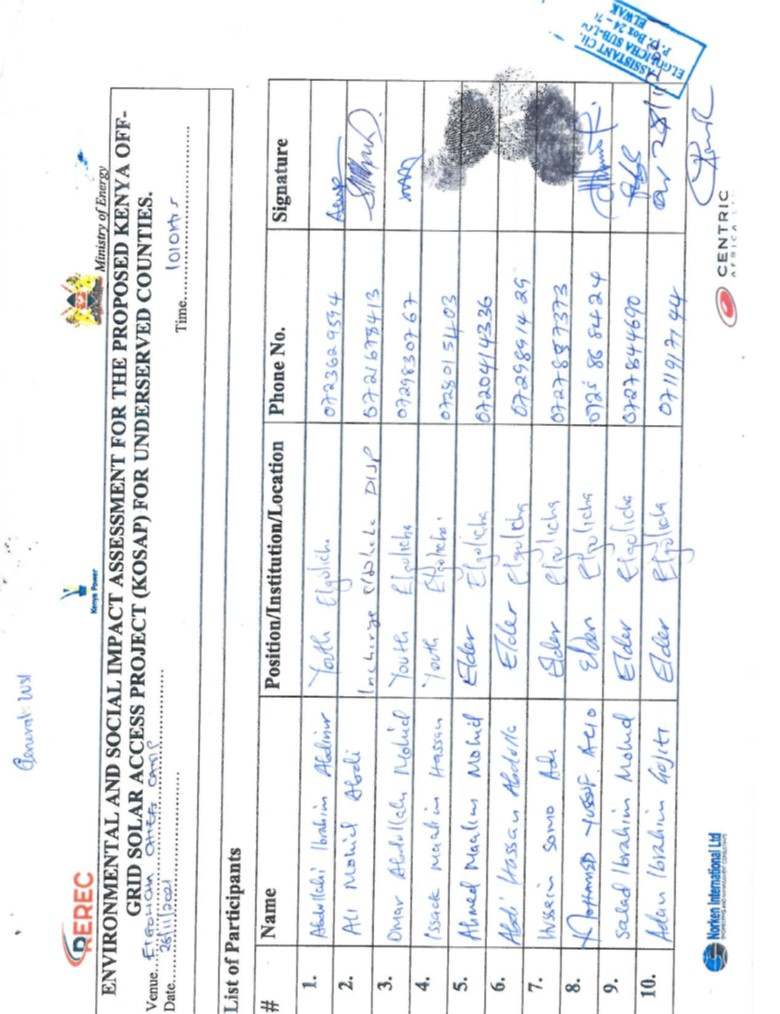 General: WSI
REREC
Kenya Power
Ministry of Energy
ENVIRONMENTAL AND SOCIAL IMPACT ASSESSMENT FOR THE PROPOSED KENYA OFF-
GRID SOLAR ACCESS PROJECT (KOSAP) FOR UNDERSERVED COUNTIES.
Venue... Elgolicha Chiefs camp
Date... 28/11/2021 Time... 1010Hrs
List of Participants
# Name Position/Institution/Location Phone No. Signature
1. Abdullahi Ibrahim Abdinur Youth Elgolicha 0723629594
2. Ali Mohid Abdi Incharge DISP 0721678413
3. Omar Abdullahi Mohid Youth Elgolicha 0729830767
4. Issack Maalim Hassan Youth Elgolicha 0728015403
5. Ahmed Maalim Mohid Elder Elgolicha 0720414336
6. Abdi Hassan Abdulla Elder Elgolicha 0729891429
7. Hussein Somo Adi Elder Elgolicha 0727887373
8. Mohamed Yussuf Elder Elgolicha 0725868424
9. Salad Ibrahim Mohid Elder Elgolicha 0727844690
10. Adan Ibrahim Gojiti Elder Elgolicha 0711917144
ASSISTANT CH
ELGOLICHA SUB-LO
P. O. Box 24 - 7
ELWAK
Norken International Ltd
CENTRIC
AFRICA LTD